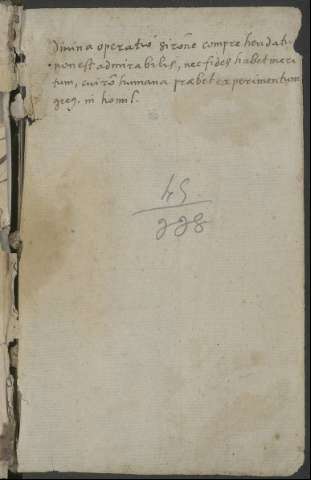 Divina operatio si rōne comprehendatur
non est admirabilis, nec fides habet meri
tum, cui rō humana præbet experimentum
greg. in homil.
45
228